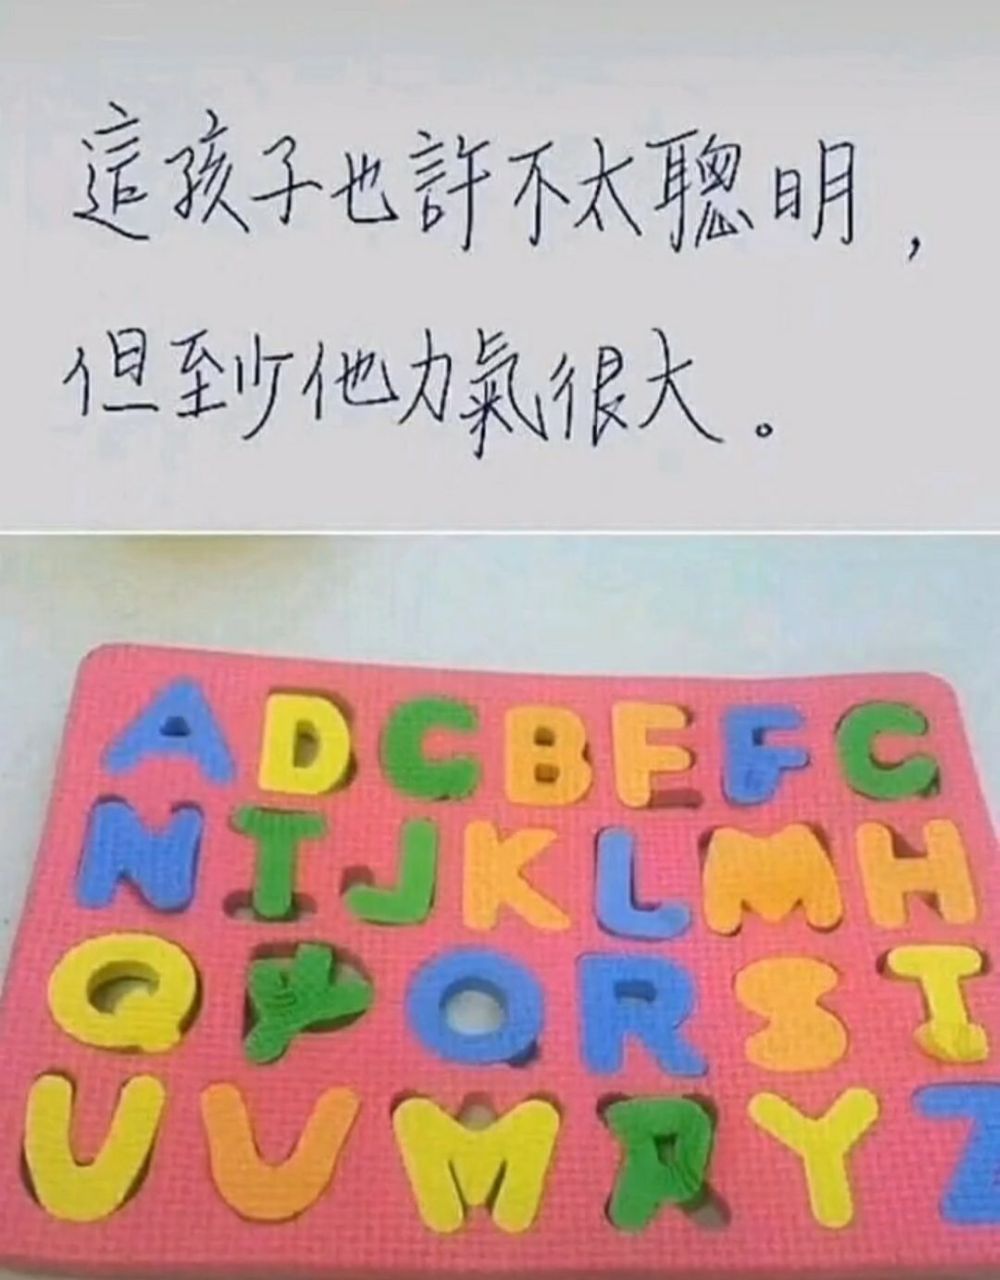 這孩子也許不太聰明，
但至少他力氣很大。
A D C B E F C
N T J K L M H
Q Y O R S I
U V M R Y Z